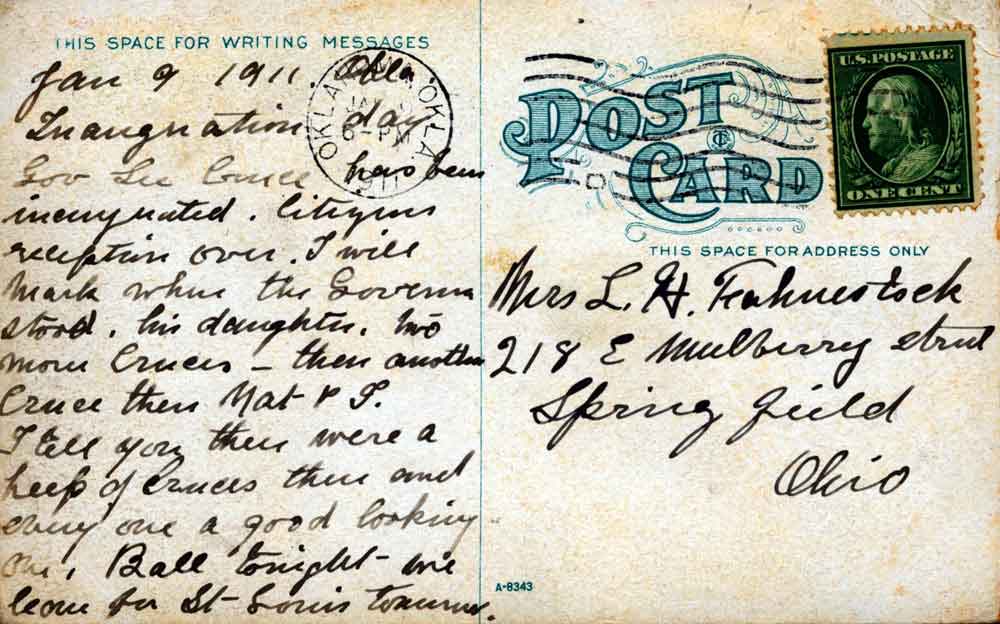 THIS SPACE FOR WRITING MESSAGES
Jan 9 1911. Okla
Inauguation day
Gov Lee Cruce has been
inaugurated. Citizens
reception over. I will
mark where the Governor
stood. his daughter. two
more Cruces – then another
Cruce then Nat & I.
I tell you there were a
heep of Cruces there and
every one a good looking
one. Ball tonight – we
leave for St. Louis tomorrow.
OKLAHOMA, OKLA.
JAN 9
6-PM
1911
POST
CARD
U.S. POSTAGE
ONE CENT
THIS SPACE FOR ADDRESS ONLY
Mrs L. H. Fahnestock
218 E Mulberry Street
Springfield
Ohio
A-8343